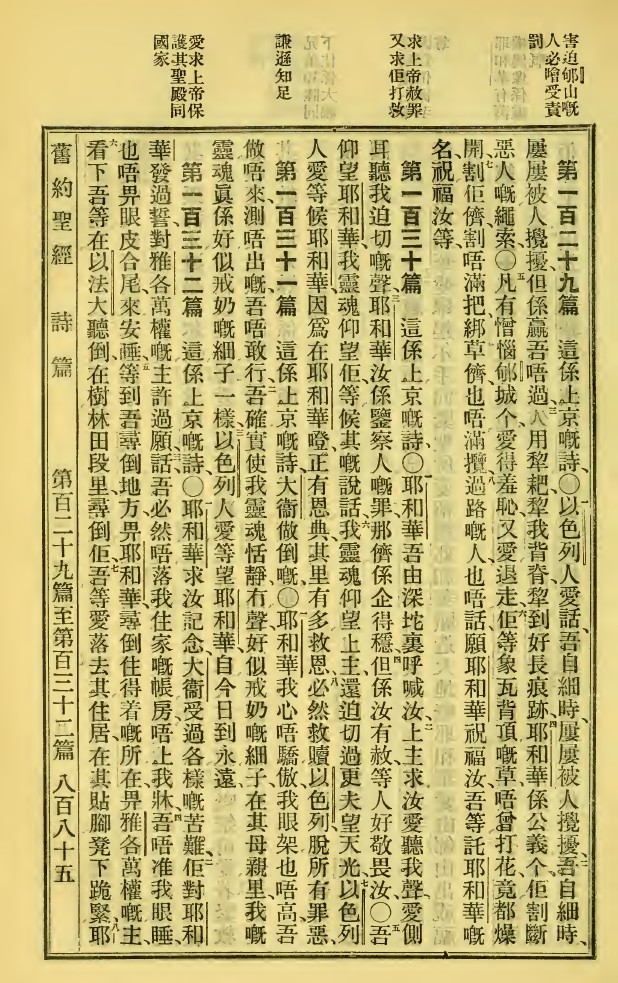 害迫郇山嘅
人必噲受責
罰
求上帝赦罪
又求佢打救
謙遜知足
愛求上帝保
護其聖殿同
國家
第一百二十九篇 這係上京嘅詩〇以色列人愛話、吾自細時、屢屢被人攪擾、吾自細時、
屢屢被人攪擾、但係贏吾唔過、人用犂耙犂我背脊、犂到好長痕跡、耶和華係公義个、佢割斷
惡人嘅繩索〇凡有憎惱郇城个、愛得羞恥、又愛退走、佢等象瓦背頂嘅草、唔曾打花、竟都燥
開、割佢儕割唔滿把、綁草儕也唔滿攬、過路嘅人也唔話、願耶和華祝福汝、吾等託耶和華嘅
名、祝福汝等、
第一百三十篇 這係上京嘅詩〇耶和華、吾由深坔裏呼喊汝、上主、求汝愛聽我聲、愛側
耳聽我迫切嘅聲、耶和華、汝係鑒察人嘅罪、那儕係企得穩、但係汝有赦、等人好敬畏汝〇吾
仰望耶和華、我靈魂仰望佢、等候其嘅說話、我靈魂仰望上主、還迫切過更夫望天光、以色列
人愛等候耶和華、因爲在耶和華瞪正有恩典、其里有多救恩、必然救贖以色列脫所有罪惡、
第一百三十一篇 這係上京嘅詩、大衞做倒嘅〇耶和華、我心唔驕傲、我眼架也唔高、吾
做唔來、測唔出嘅、吾唔敢行、吾確實使我靈魂恬靜冇聲、好似戒奶嘅細子在其母親里、我嘅
靈魂眞係好似戒奶嘅細子一樣、以色列人愛等望耶和華、自今日到永遠、
第一百三十二篇 這係上京嘅詩〇耶和華、求汝記念大衞受過各樣嘅苦難、佢對耶和
華發過誓、對雅各萬權嘅主許過願、話、吾必然唔落我住家嘅帳房、唔上我牀、吾唔准我眼睡、
也唔畀眼皮合尾來安睡、等到吾尋倒地方畀耶和華、尋倒住得着嘅所在畀雅各萬權嘅主、
看下、吾等在以法大聽倒、在樹林田段里尋倒佢、吾等愛落去其住居、在其貼腳凳下跪緊、耶
舊約聖經 詩篇 第百二十九篇至第百三十二篇 八百八十五